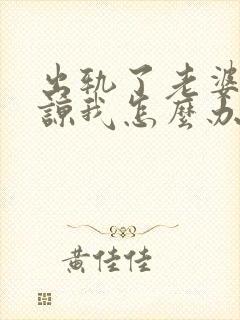 出轨了老婆
谅我怎麼办
黄佳佳